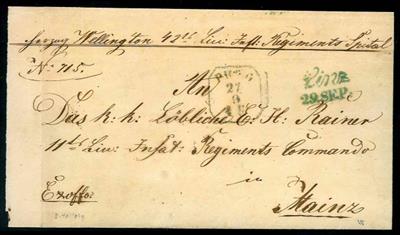 Herzog Wellington 42ts Lin: Inft: Regiments Spital
No: 715.
An
27
9
Linz
29. SEP.
Das k: k: Löbliche E: H: Rainer
11ts Lin: Infat: Regiments Commando
in
Exoffo:
Mainz